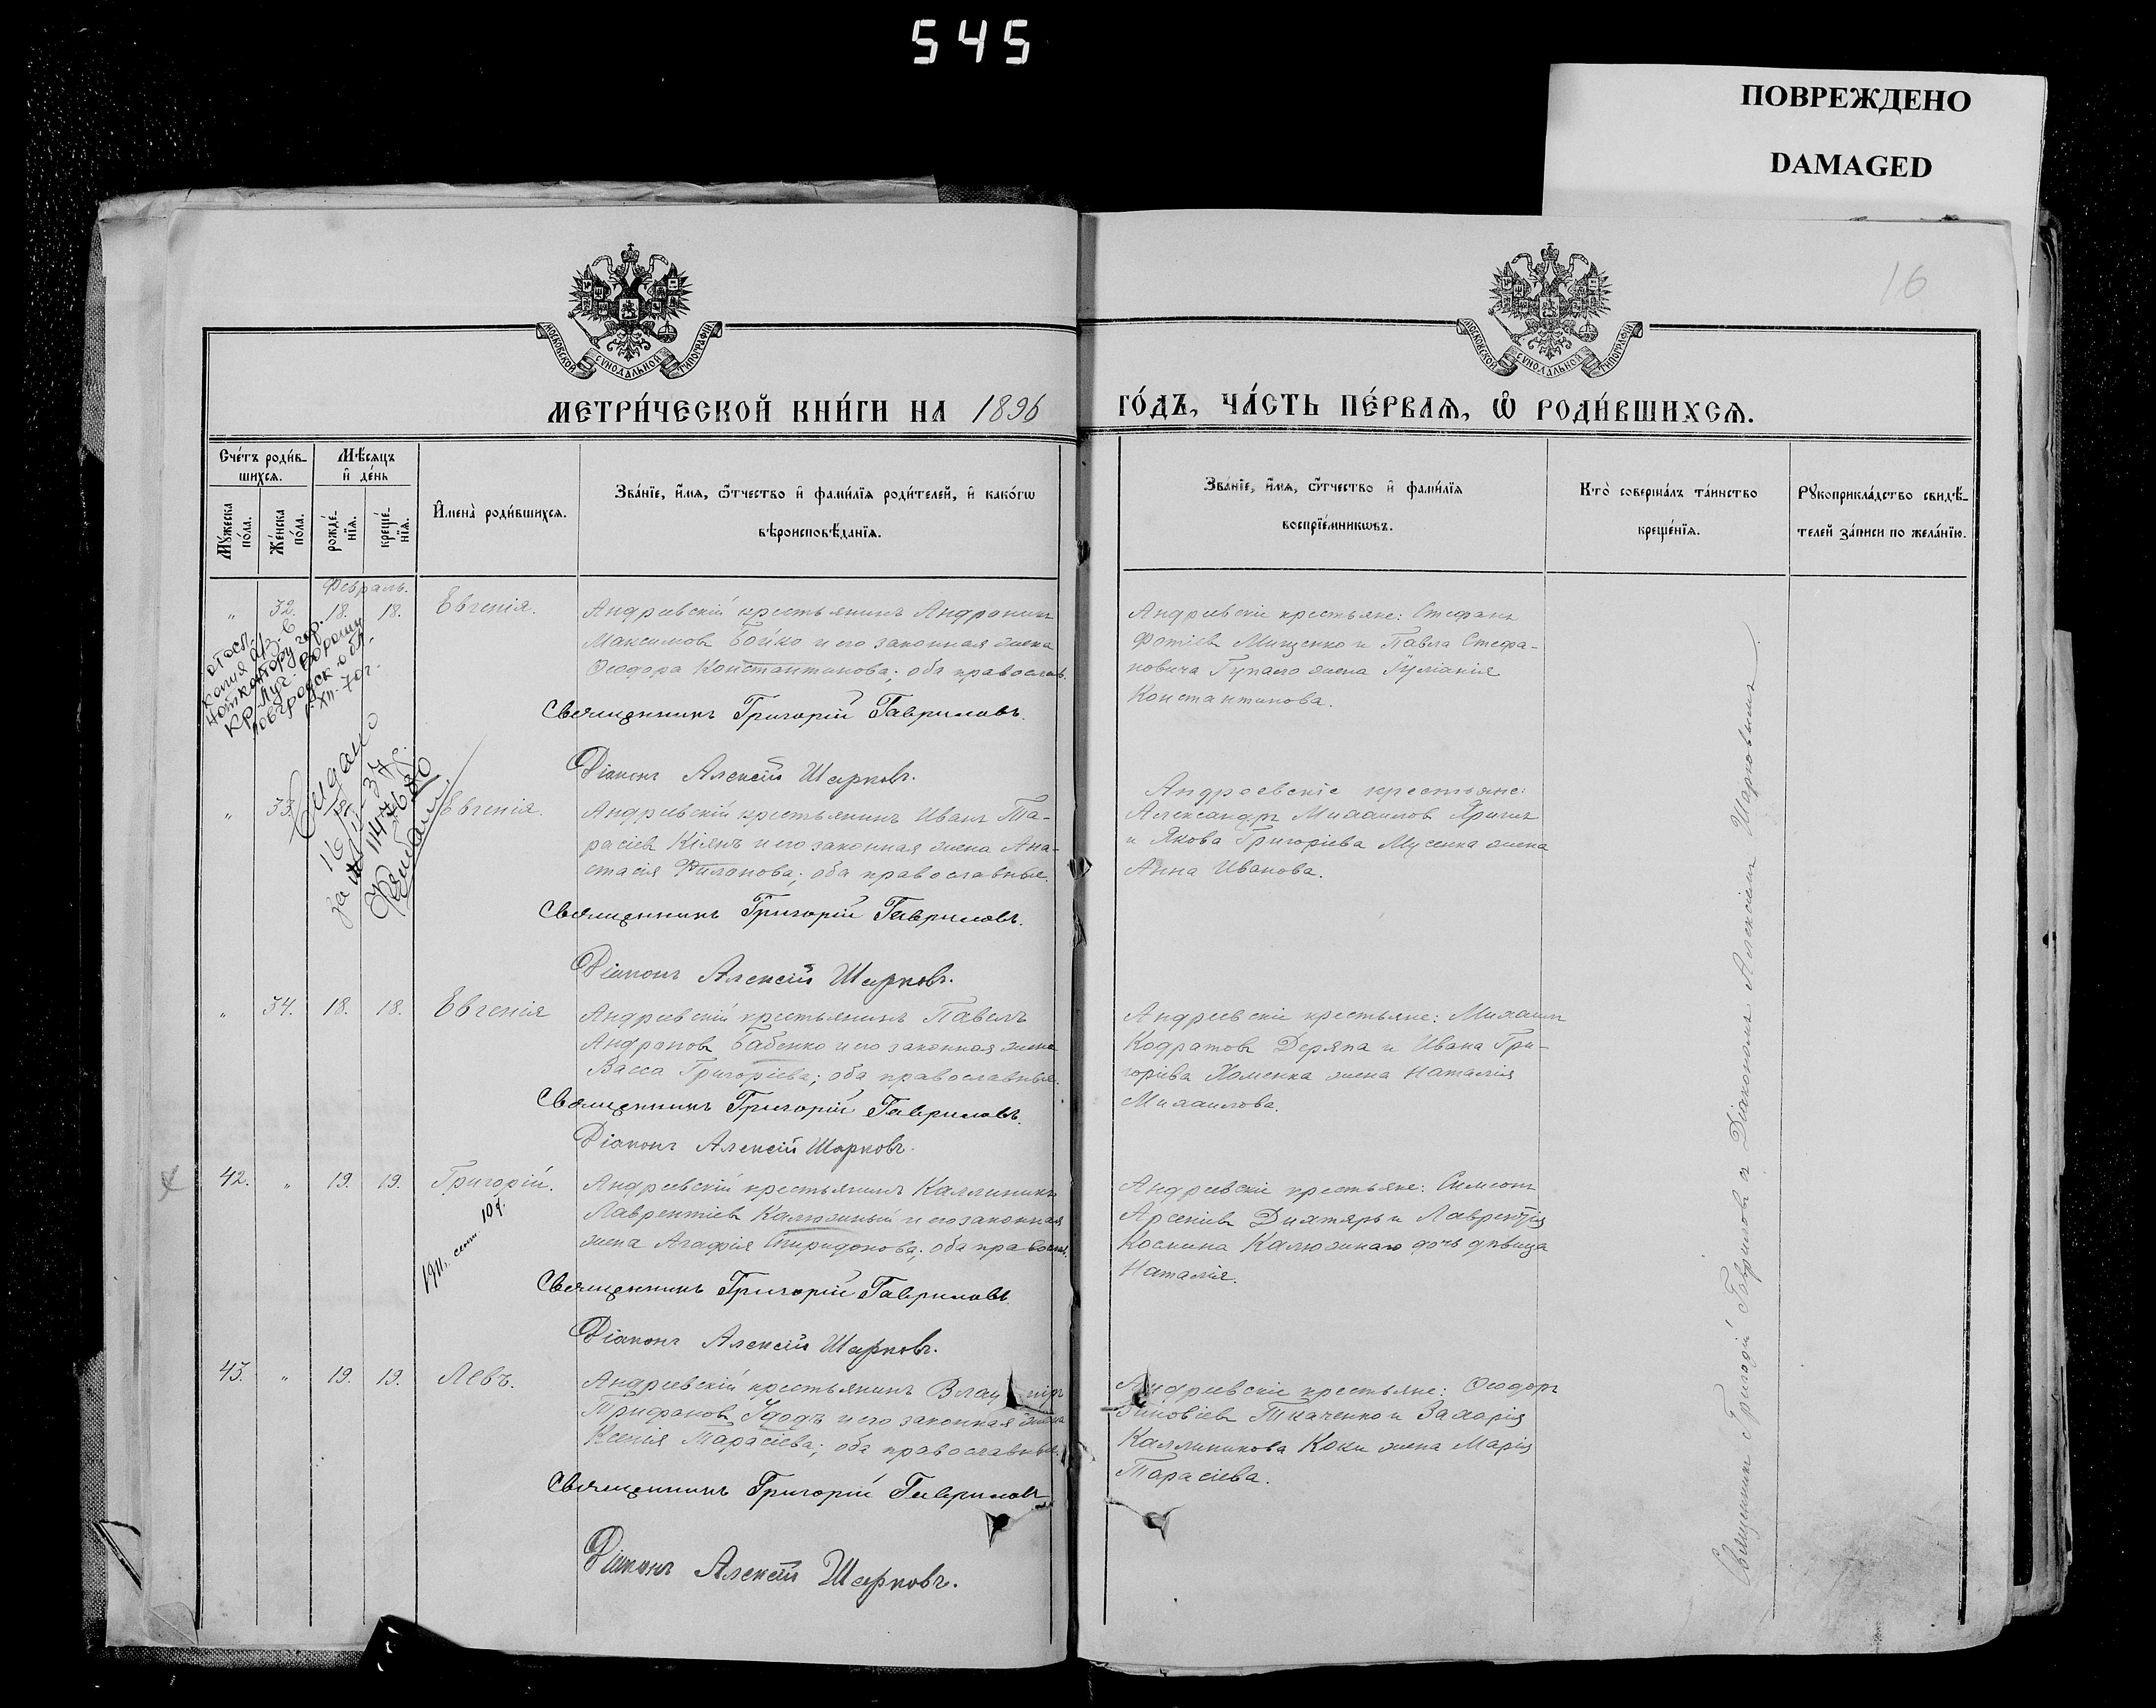 545
ПОВРЕЖДЕНО
DAMAGED
16
МОСКОВСКОЙ СѴНОДАЛЬНОЙ ТИПОГРАФІИ
МОСКОВСКОЙ СѴНОДАЛЬНОЙ ТИПОГРАФІИ
МЕТРИ́ЧЕСКОЙ КНИ́ГИ НА 1896
ГО́ДЪ, ЧА́СТЬ ПЕ́РВАѦ, Ѽ РОДИ́ВШИХСѦ.
Сче́тъ роди́в-
шихсѧ.
Мѣ́сѧцъ
и҆ де́нь
Мꙋ́жеска
по́ла.
Же́нска
по́ла.
рожде́-
нїѧ.
креще́-
нїѧ.
И҆мена̀ роди́вшихсѧ.
Зва́нїе, и҆́мѧ, ѻ҆́тчество и҆ фами́лїѧ роди́телей, и҆ како́гѡ
вѣроисповѣ́данїѧ.
Зва́нїе, и҆́мѧ, ѻ҆́тчество и҆ фами́лїѧ
воспрїе́мникѡвъ.
Кто̀ соверша́лъ та́инство
креще́нїѧ.
Рꙋкоприкла́дство свидѣ́-
телей за́писи по жела́нїю.
Февраль.
" 32. 18. 18. Евгенія.
Андреевскій крестьянинъ Андроникъ
Максимовъ Бойко и его законная жена
Ѳеодора Константинова; оба православ.
Священникъ Григорій Гавриловъ.
Діаконъ Алексій Шарковъ.
Андреевскіе крестьяне: Стефанъ
Фотіевъ Мищенко и Павла Стефа-
новича жена
Константинова.
XII-70г.
Выдано
16/II-37г.
за № 1147680
" 33. Евгенія.
Андреевскій крестьянинъ Иванъ Та-
расіевъ Кіянъ и его законная жена Ана-
стасія Филонова; оба православные.
Священникъ Григорій Гавриловъ.
Діаконъ Алексій Шарковъ.
Андреевскіе крестьяне:
Александръ Михаиловъ
и Якова Григоріева Мусенка жена
Анна Иванова.
" 34. 18. 18. Евгенія
Андреевскій крестьянинъ Павелъ
Андроновъ Бабенко и его законная жена
Васса Григоріева; оба православные.
Священникъ Григорій Гавриловъ.
Діаконъ Алексій Шарковъ.
Андреевскіе крестьяне: Михаилъ
Кодратовъ Деряпа и Ивана Гри-
горіева Хоменка жена Наталія
Михаилова.
42. " 19. 19. Григорій.
1911г. сент. 10 д.
Андреевскій крестьянинъ Каллиникъ
Лаврентіевъ Калюжный и его законная
жена Агафія Спиридонова; оба правосл.
Священникъ Григорій Гавриловъ.
Діаконъ Алексій Шарковъ.
Андреевскіе крестьяне: Симеонъ
Арсеніевъ Дихтярь и Лаврентія
Космина Калюжнаго дочь дѣвица
Наталія.
43. " 19. 19. Левъ.
Андреевскій крестьянинъ Владиміръ
Трифоновъ Удодъ и его законная жена
Ксенія Тарасіева; оба православные.
Священникъ Григорій Гавриловъ
Діаконъ Алексій Шарковъ.
Андреевскіе крестьяне: Ѳеодоръ
Зиновіевъ Ткаченко и Захарія
Каллиникова Коки жена Марія
Тарасіева.
Священникъ Григорій Гавриловъ съ Діакономъ Алексіемъ Шарковымъ.